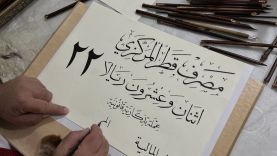 مصرف قطر المركزي
٢٢
اثنان وعشرون ريالا
عملة ورقية قانونية
المالية